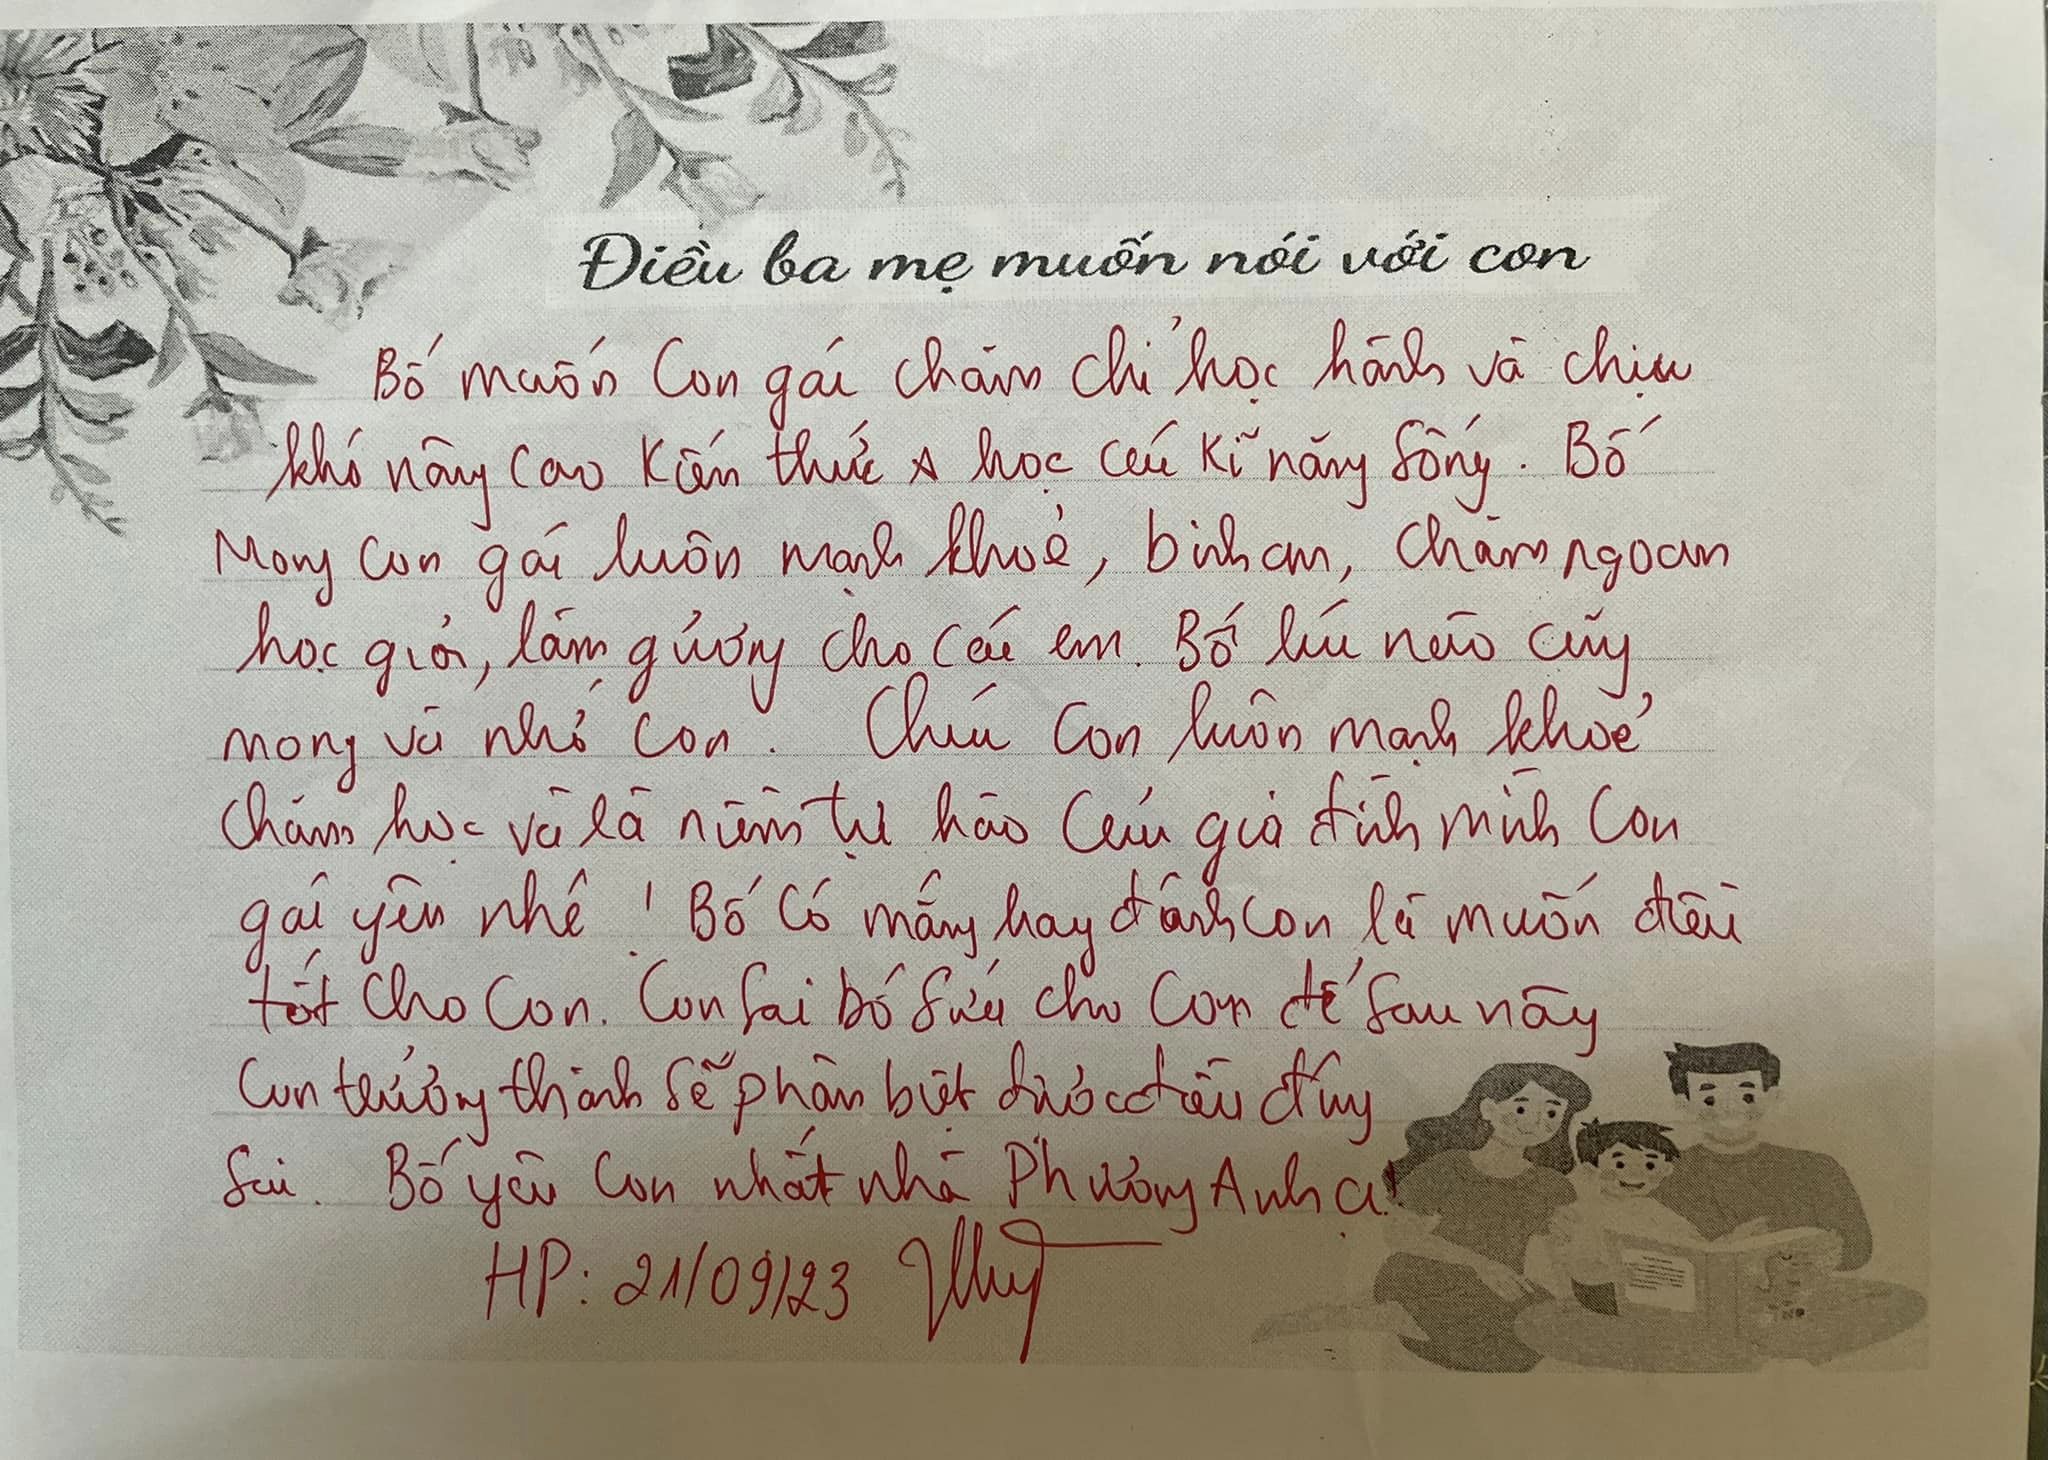 Điều ba mẹ muốn nói với con
Bố muốn Con gái chăm chỉ học hành và chịu
khó nâng cao kiến thức & học các kĩ năng sống. Bố
Mong con gái luôn mạnh khoẻ, bình an, chăm ngoan
học giỏi, làm gương cho các em. Bố lúc nào cũng
mong và nhớ con. Chúc con luôn mạnh khoẻ
chăm học và là niềm tự hào của gia đình mình con
gái yêu nhé! Bố có mắng hay đánh con là muốn điều
tốt cho con. Con sai bố sửa cho con để sau này
con trưởng thành sẽ phân biệt được điều đúng
sai. Bố yêu con nhất nhà Phương Anh ạ!
HP: 21/09/23